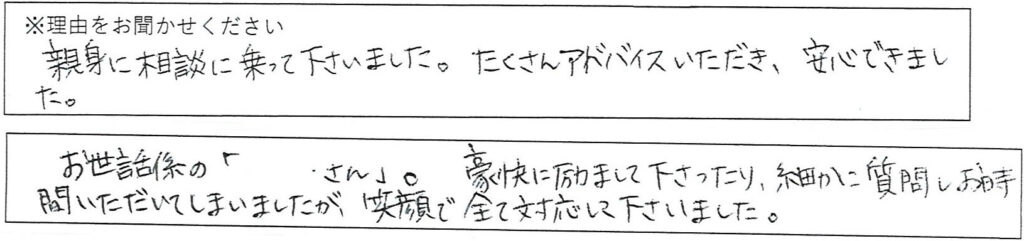 ※理由をお聞かせください
親身に相談に乗って下さいました。たくさんアドバイスいただき、安心できまし
た。
お世話係の「 さん」。豪快に励まして下さったり、細かに質問しお時
間いただいてしまいましたが、笑顔で全て対応して下さいました。